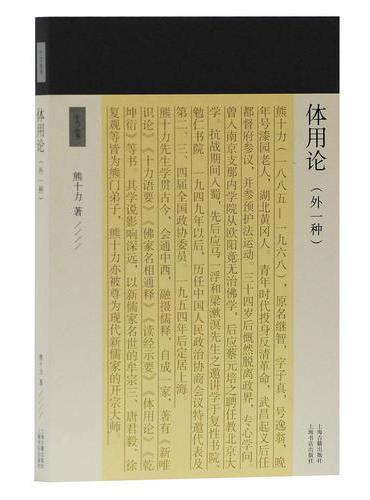 体用论
（外一种）
上海古籍出版社
上海书店出版社
熊十力（一八八五—一九六八），原名继智，字子真，号逸翁，晚
年号漆园老人，湖北黄冈人 青年时代投身反清革命，武昌起义后任
都督府参议，并参预护法运动 三十四岁后慨然脱离政界，专心学问。
曾入南京支那内学院从欧阳竟无治佛学，后应蔡元培之聘任教北京大
学 抗战期间入蜀，先后应马一浮和梁漱溟先生之邀讲学于复性书院、
勉仁书院 一九四九年以后，历任中国人民政治协商会议特邀代表及
第二、三、四届全国政协委员 一九五四年后定居上海
熊十力先生学贯古今，会通中西，融摄儒释，自成一家，著有《新唯
识论》《十力语要》《佛家名相通释》《读经示要》《体用论》《乾
坤衍》等书 其学说影响深远，以新儒家名世的牟宗三、唐君毅、徐
复观等皆为熊门弟子，熊十力亦被尊为现代新儒家的开宗大师。
熊十力 著
体用论
（外一种）
熊十力 著
上海古籍出版社
上海书店出版社